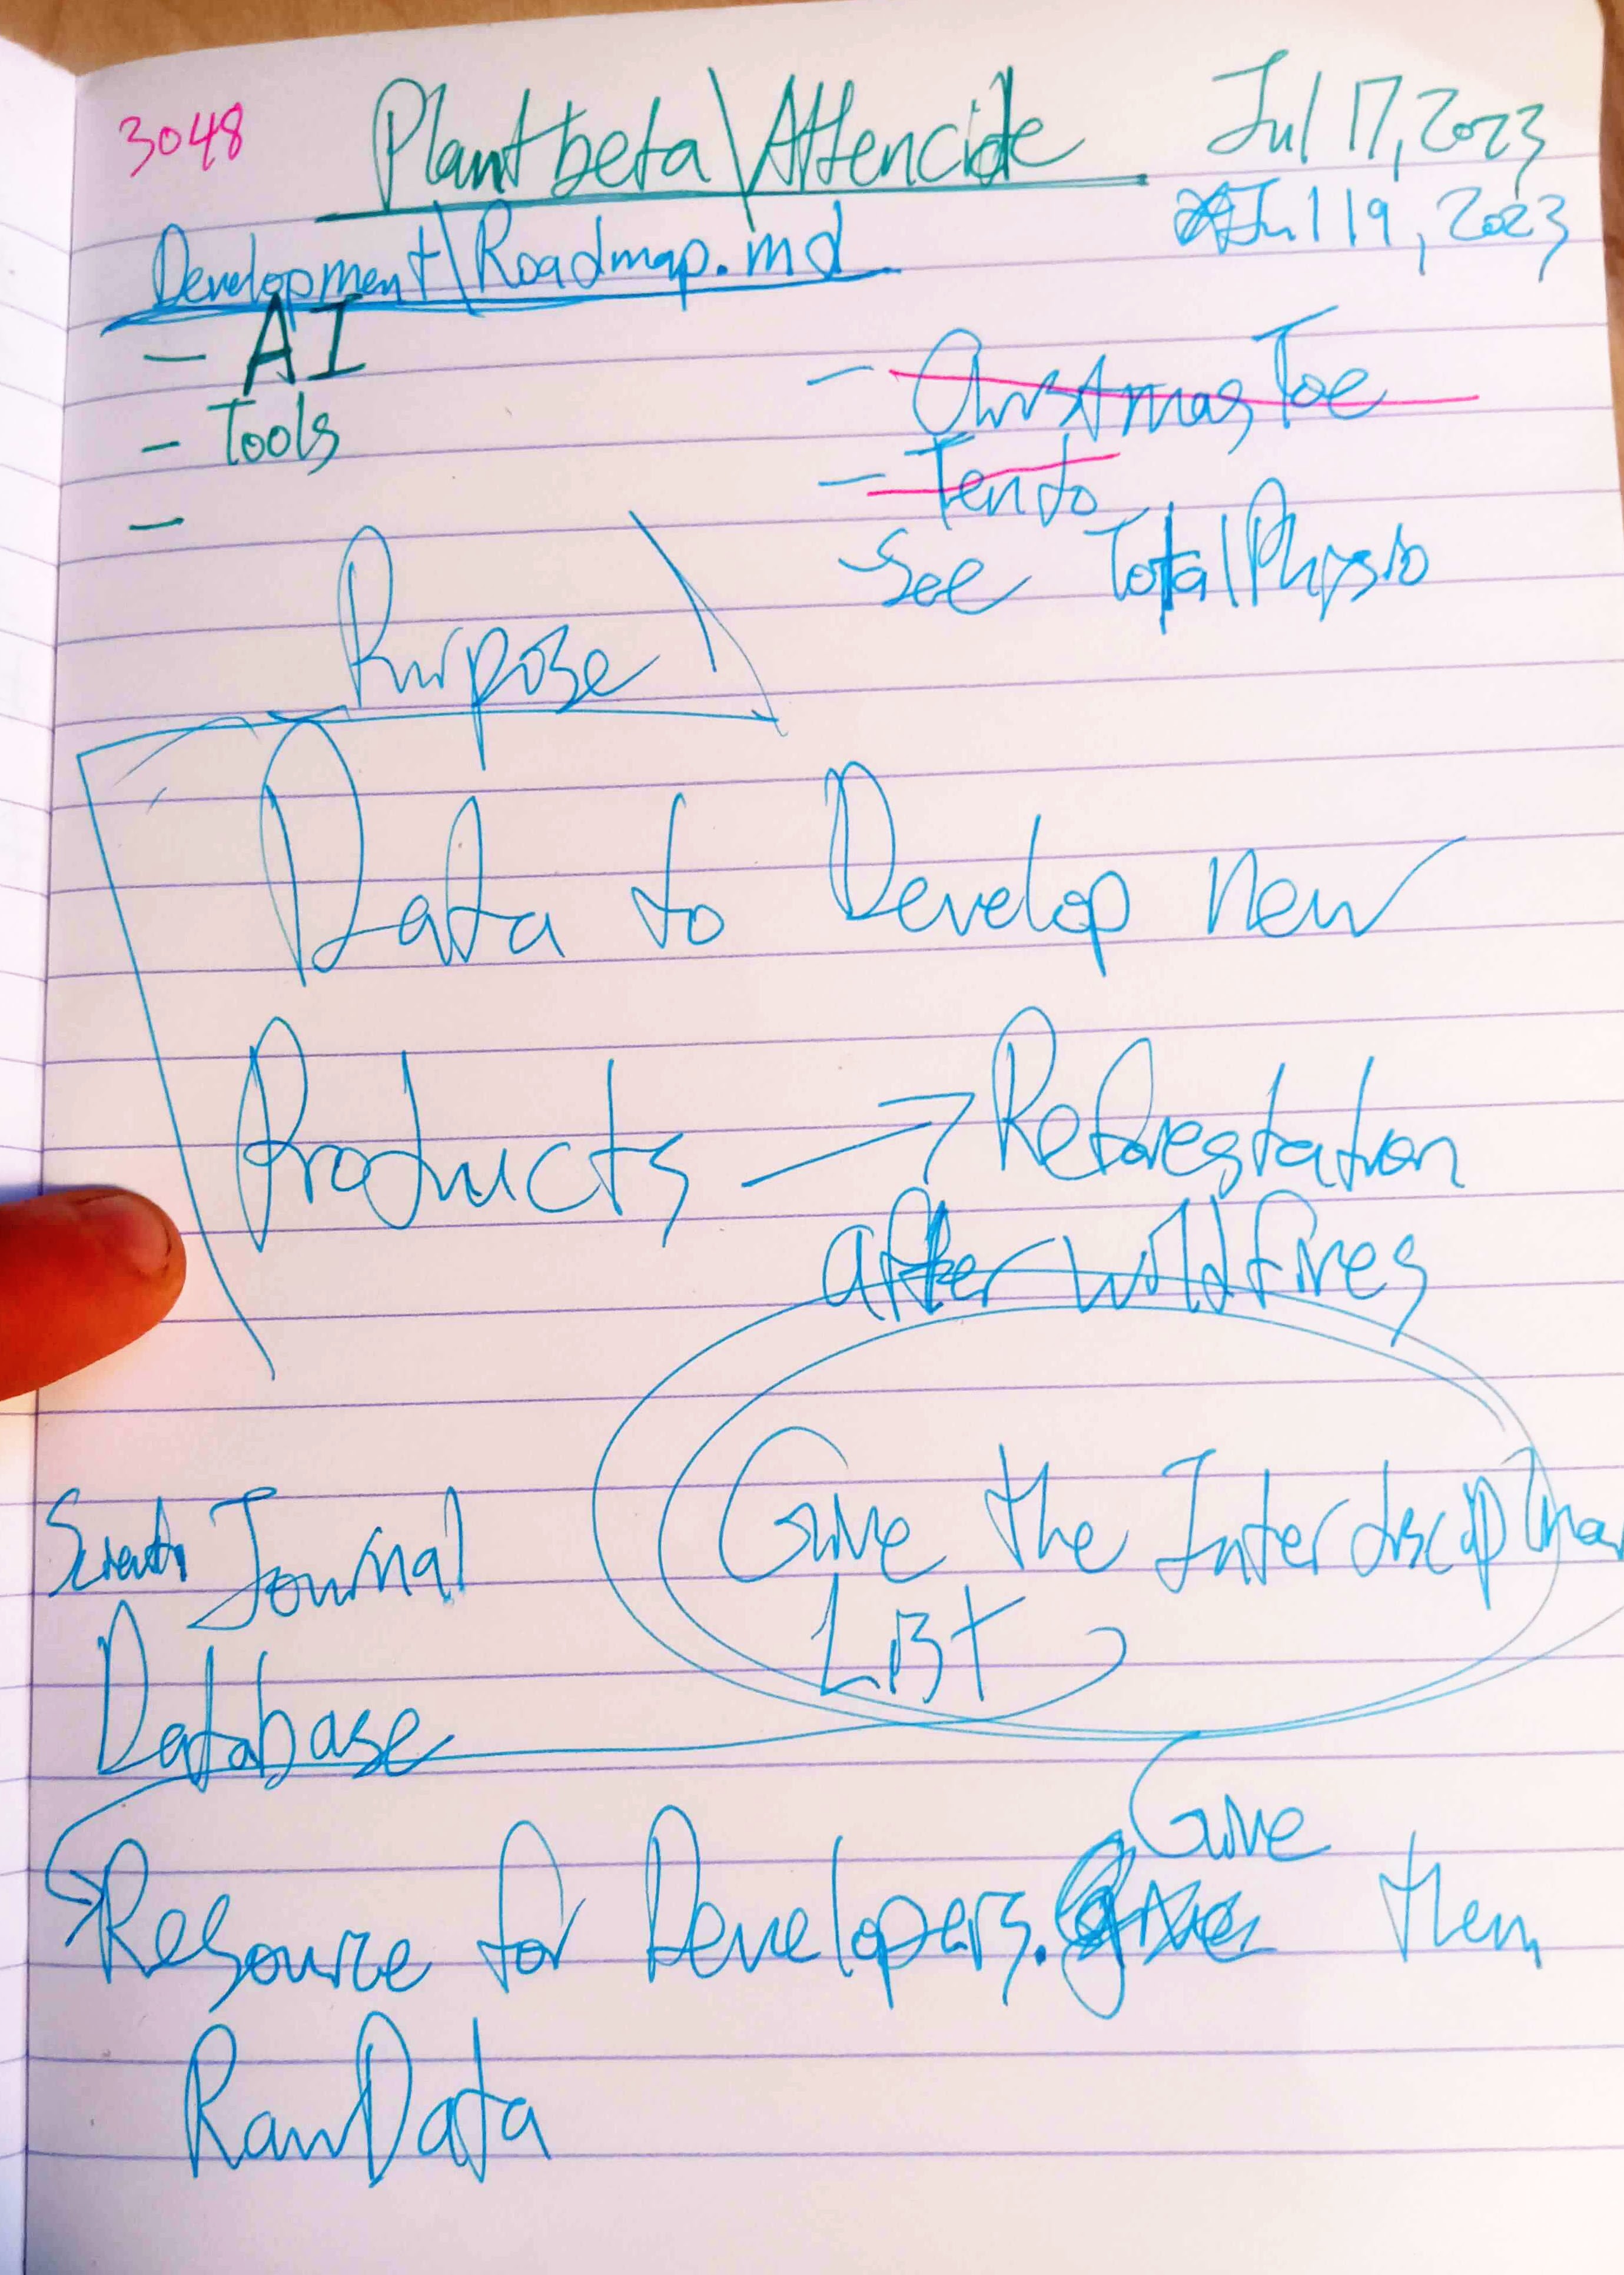 3048 Plantbeta\Attencide Jul 17, 2023
Jul 19, 2023
Development\Roadmap.md
- AI
- Tools
-
- Christmas Toe
- Tendo
See TotalPhysio
Purpose
Data to Develop new
Products → Reforestation
after wildfires
Give the Interdisciplinar
List
Journal
Database
Resource for Developers. Give them
Raw Data